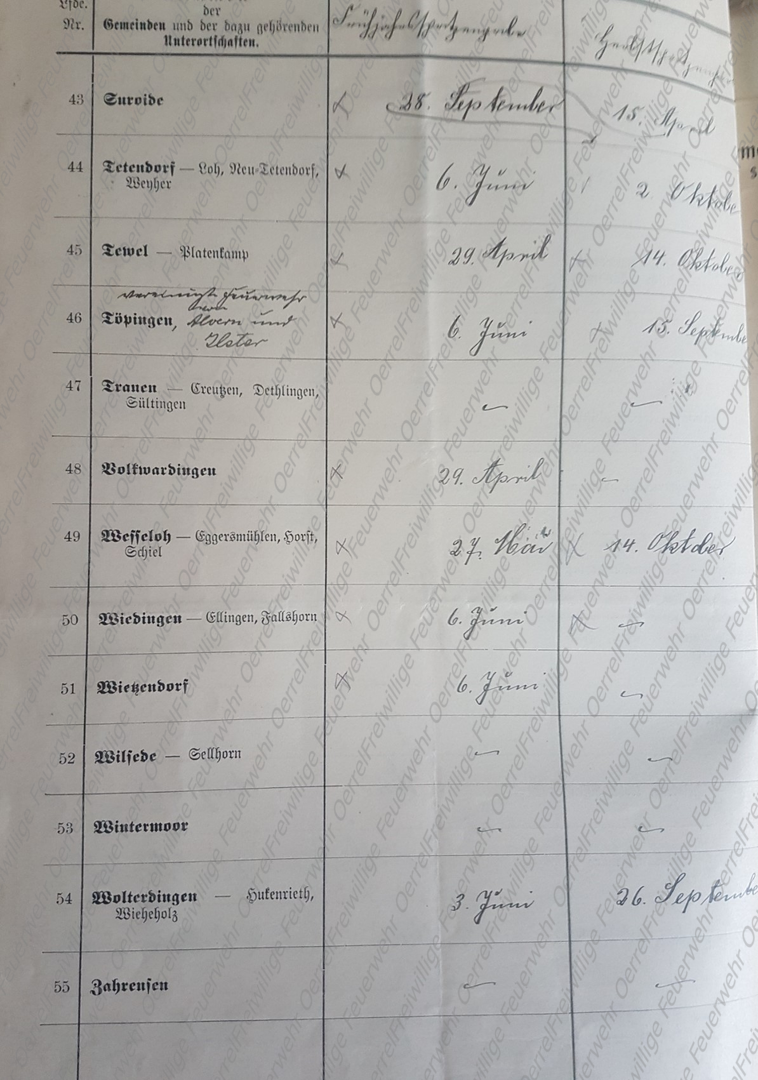 Lfde. Nr.
der
Gemeinden und der dazu gehörenden
Unterortschaften.
Frühjahrsspritzenprobe
43 Suroide × 28. September 15. April
44 Tetendorf — Loh, Neu-Tetendorf, × 6. Juni 2. Oktobe
Weyher
45 Tewel — Platenkamp × 29. April × 14. Oktober
vereinigte Feuerwehr
46 Töpingen, Alvern und × 6. Juni × 15. Septembe
Ilster
47 Trauen — Creutzen, Dethlingen,
Sültingen
48 Volkwardingen × 29. April
49 Wesseloh — Eggersmühlen, Horst, × 27. Mai × 14. Oktober
Schiel
50 Wiedingen — Ellingen, Fallshorn × 6. Juni ×
51 Wietzendorf × 6. Juni
52 Wilsede — Sellhorn
53 Wintermoor
54 Wolterdingen — Hukenrieth, 3. Juni 26. Septembe
Wieheholz
55 Zahrensen
Freiwillige Feuerwehr Oerrel